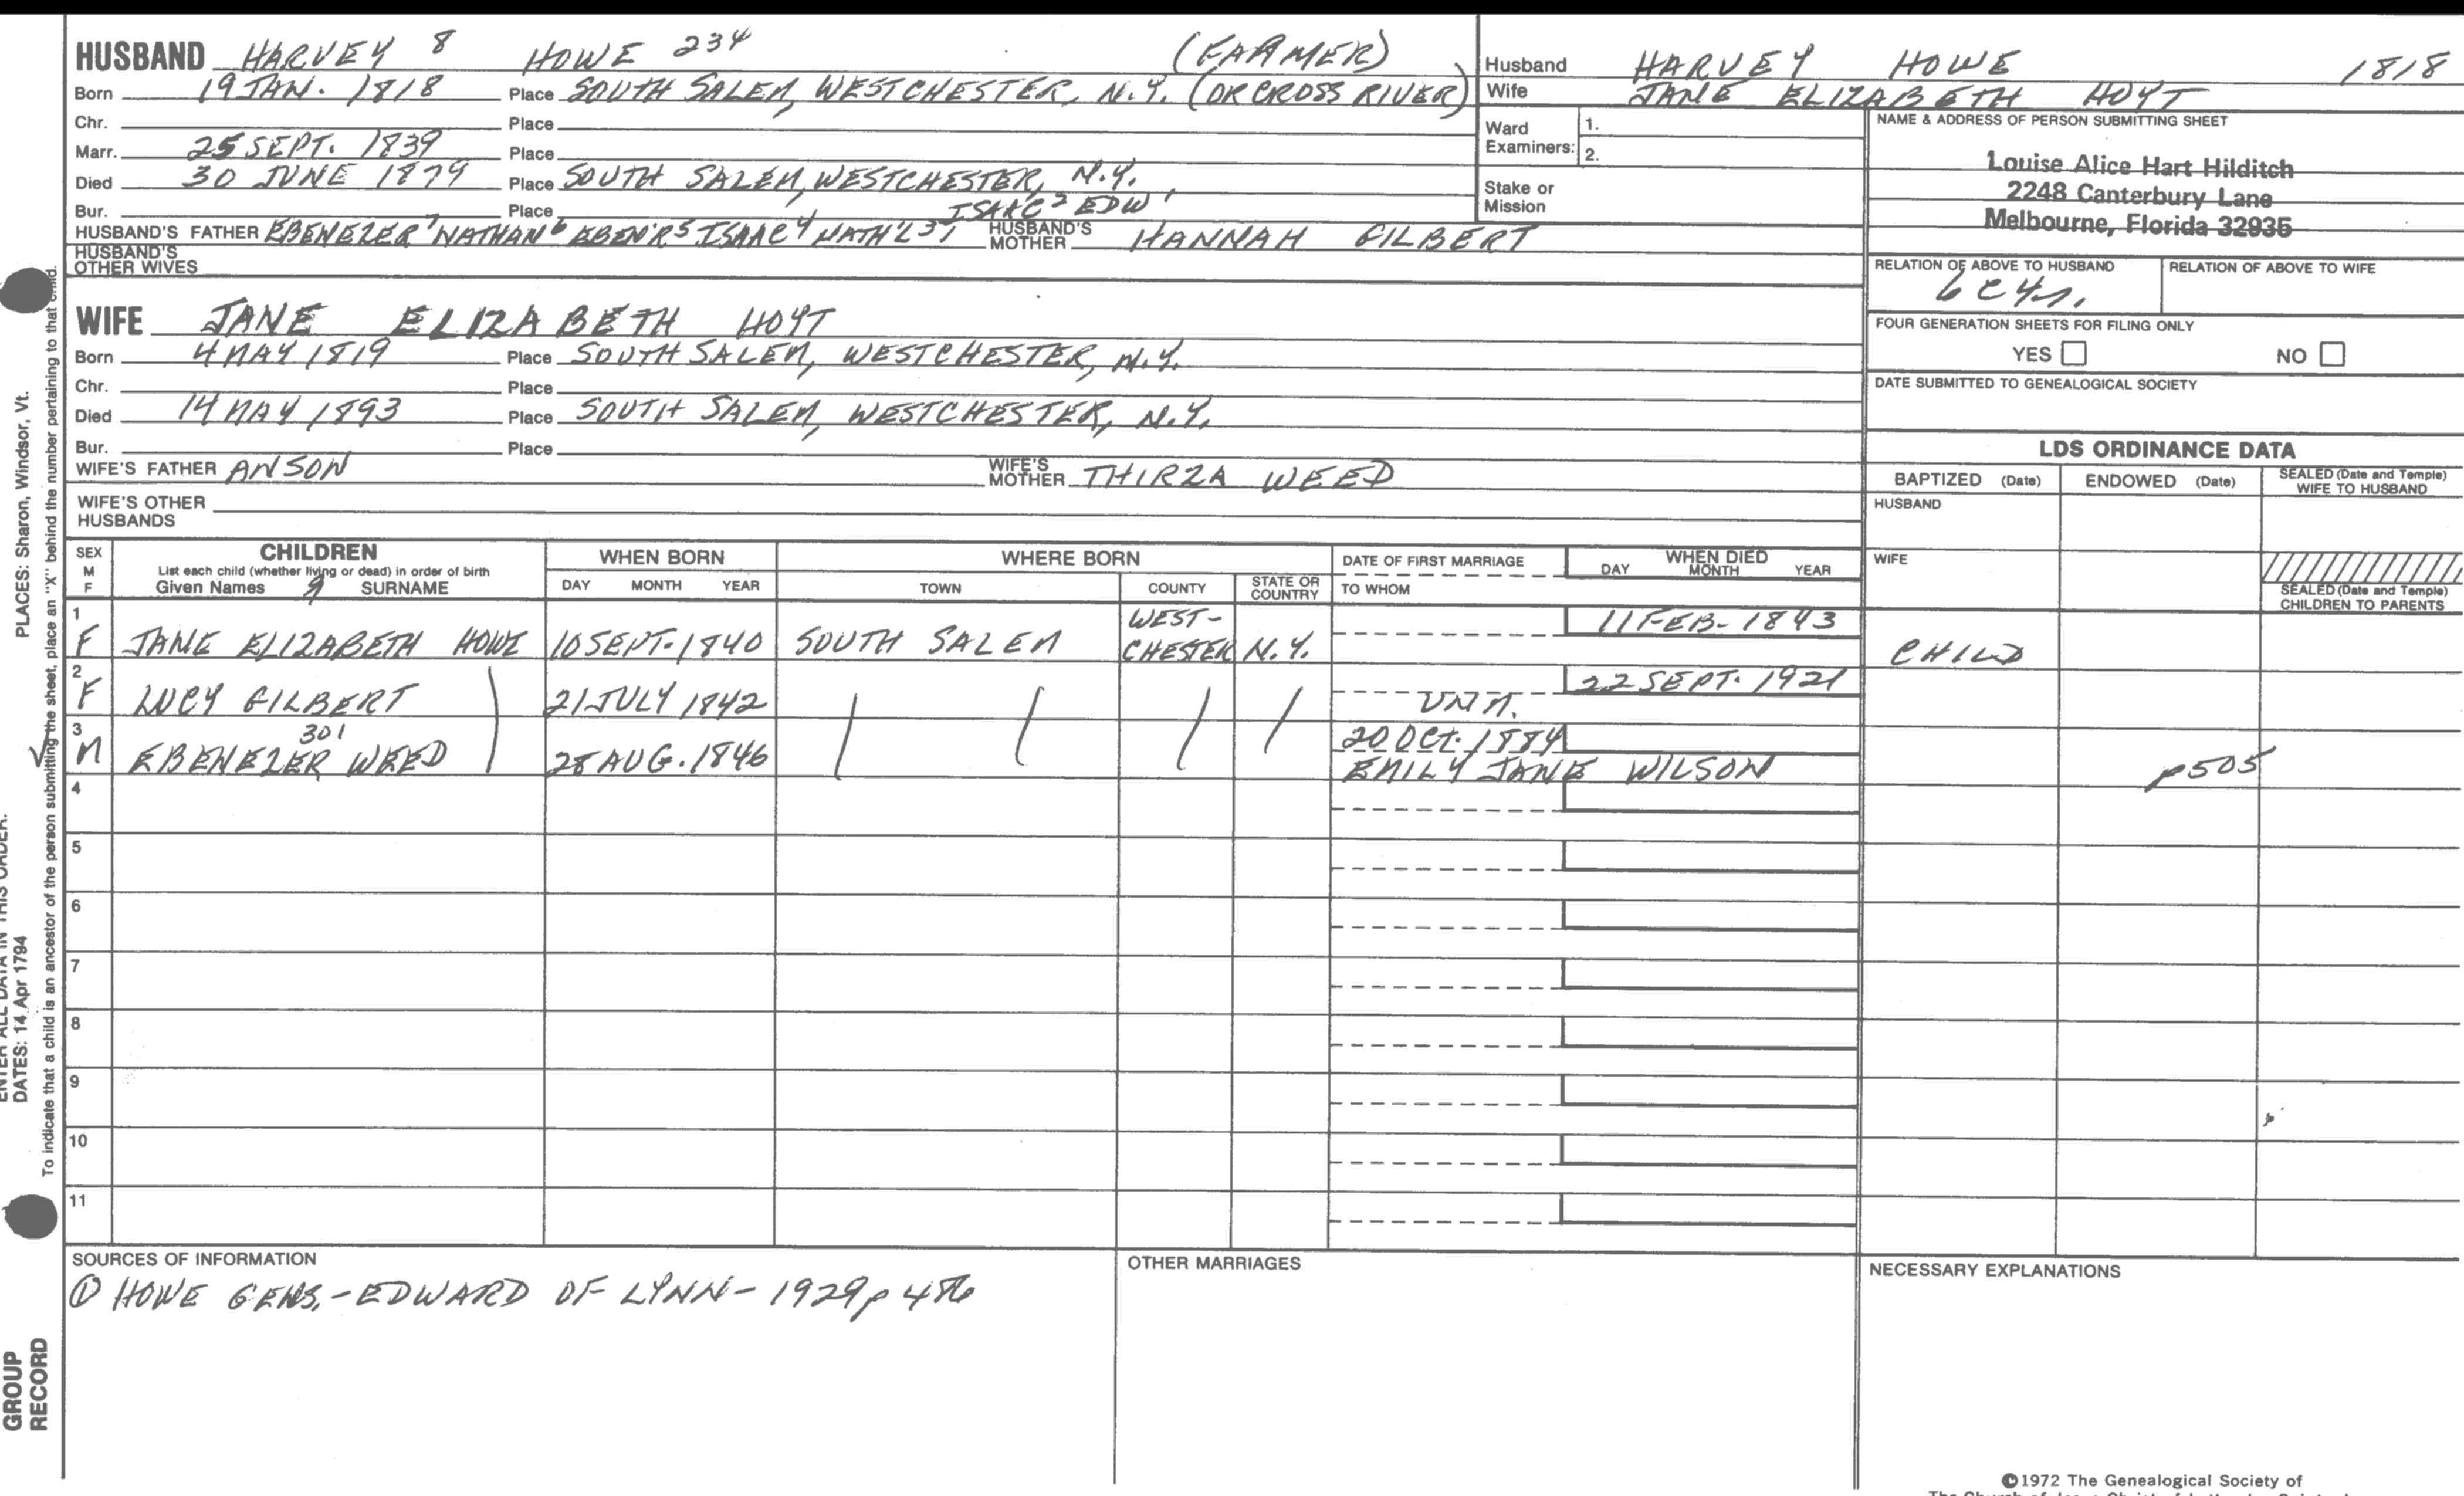 HUSBAND HARVEY 8 HOWE 234 (FARMER)
Born 19 JAN. 1818 Place SOUTH SALEM, WESTCHESTER, N.Y. (OR CROSS RIVER)
Chr. Place
Marr. 25 SEPT. 1839 Place
Died 30 JUNE 1879 Place SOUTH SALEM, WESTCHESTER, N.Y.
Bur. Place ISAAC2 EDW1
HUSBAND'S FATHER EBENEZER7 NATHAN6 EBEN'R5 ISAAC4 NATH'L3 HUSBAND'S MOTHER HANNAH GILBERT
HUSBAND'S OTHER WIVES
Husband HARVEY HOWE 1818
Wife JANE ELIZABETH HOYT
Ward Examiners: 1.
2.
Stake or Mission
NAME & ADDRESS OF PERSON SUBMITTING SHEET
Louise Alice Hart Hilditch
2248 Canterbury Lane
Melbourne, Florida 32935
RELATION OF ABOVE TO HUSBAND RELATION OF ABOVE TO WIFE
6C4r.
FOUR GENERATION SHEETS FOR FILING ONLY
YES NO
DATE SUBMITTED TO GENEALOGICAL SOCIETY
WIFE JANE ELIZABETH HOYT
Born 4 MAY 1819 Place SOUTH SALEM, WESTCHESTER, N.Y.
Chr. Place
Died 14 MAY 1893 Place SOUTH SALEM, WESTCHESTER, N.Y.
Bur. Place
WIFE'S FATHER ANSON WIFE'S MOTHER THIRZA WEED
WIFE'S OTHER HUSBANDS
LDS ORDINANCE DATA
BAPTIZED (Date) ENDOWED (Date) SEALED (Date and Temple) WIFE TO HUSBAND
HUSBAND
WIFE
SEALED (Date and Temple) CHILDREN TO PARENTS
SEX M F
CHILDREN
List each child (whether living or dead) in order of birth
Given Names 9 SURNAME
WHEN BORN
DAY MONTH YEAR
WHERE BORN
TOWN COUNTY STATE OR COUNTRY
DATE OF FIRST MARRIAGE
TO WHOM
WHEN DIED
DAY MONTH YEAR
1 F JANE ELIZABETH HOWE 10 SEPT. 1840 SOUTH SALEM WEST-CHESTER N.Y. 11 FEB- 1843 CHILD
2 F LUCY GILBERT 21 JULY 1842 UNM. 22 SEPT. 1921
3 M EBENEZER WEED 301 28 AUG. 1846 20 OCT. 1884 EMILY JANE WILSON p505
4
5
6
7
8
9
10
11
SOURCES OF INFORMATION
① HOWE GENS.-EDWARD OF LYNN- 1929 p
OTHER MARRIAGES
NECESSARY EXPLANATIONS
©1972 The Genealogical Society of
PLACES: Sharon, Windsor, Vt.
ENTER ALL DATA IN THIS ORDER.
DATES: 14 Apr 1794
To indicate that a child is an ancestor of the person submitting the sheet, place an "X" behind the number pertaining to that child.
GROUP
RECORD